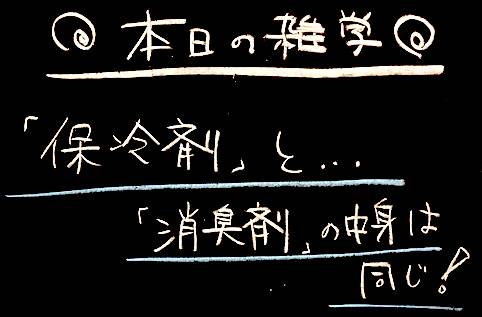 本日の雑学
「保冷剤」と...
「消臭剤」の中身は
同じ!